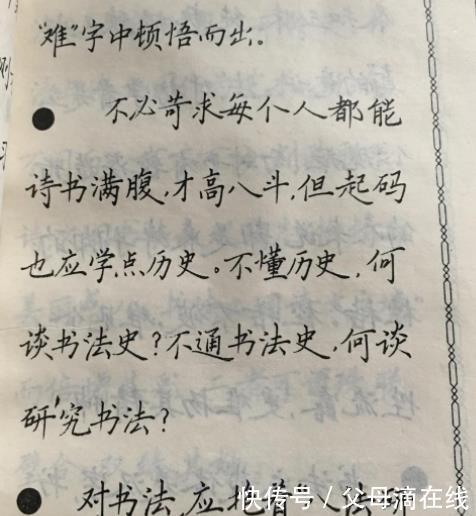 “难”字中顿悟而出。
● 不必苛求每个人都能
诗书满腹,才高八斗,但起码
也应学点历史。不懂历史,何
谈书法史?不通书法史,何谈
研究书法?
● 对书法,应
快传号 / 父母滴在线